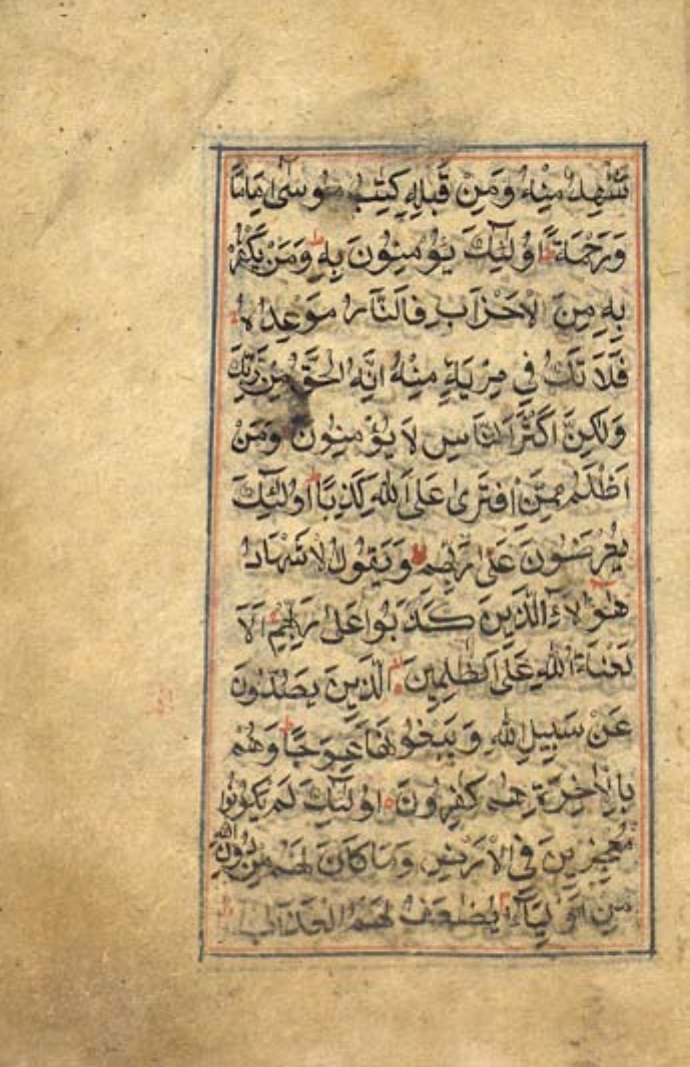 شَهِدٌ مِنْهُ وَمِنْ قَبْلِهِ كِتٰبُ مُوسٰى اِمَامًا
وَرَحْمَةً ط اُولٰئِكَ يُؤْمِنُونَ بِهِ ط وَمَنْ يَكْفُرْ
بِهِ مِنَ الْاَحْزَابِ فَالنَّارُ مَوْعِدُهُ
فَلَا تَكُ فِي مِرْيَةٍ مِنْهُ اِنَّهُ الْحَقُّ مِنْ رَبِّكَ
وَلٰكِنَّ اَكْثَرَ النَّاسِ لَا يُؤْمِنُونَ وَمَنْ
اَظْلَمُ مِمَّنِ افْتَرٰى عَلَى اللّٰهِ كَذِبًا ط اُولٰئِكَ
يُعْرَضُونَ عَلٰى رَبِّهِمْ وَيَقُولُ الْاَشْهَادُ
هٰؤُلَاءِ الَّذِينَ كَذَبُوا عَلٰى رَبِّهِمْ اَلَا
لَعْنَةُ اللّٰهِ عَلَى الظّٰلِمِينَ الَّذِينَ يَصُدُّونَ
عَنْ سَبِيلِ اللّٰهِ وَيَبْغُونَهَا عِوَجًا ط وَهُمْ
بِالْاٰخِرَةِ هُمْ كٰفِرُونَ اُولٰئِكَ لَمْ يَكُونُوا
مُعْجِزِينَ فِي الْاَرْضِ وَمَا كَانَ لَهُمْ مِنْ دُونِ اللّٰهِ
مِنْ اَوْلِيَاءَ يُضٰعَفُ لَهُمُ الْعَذَابُ